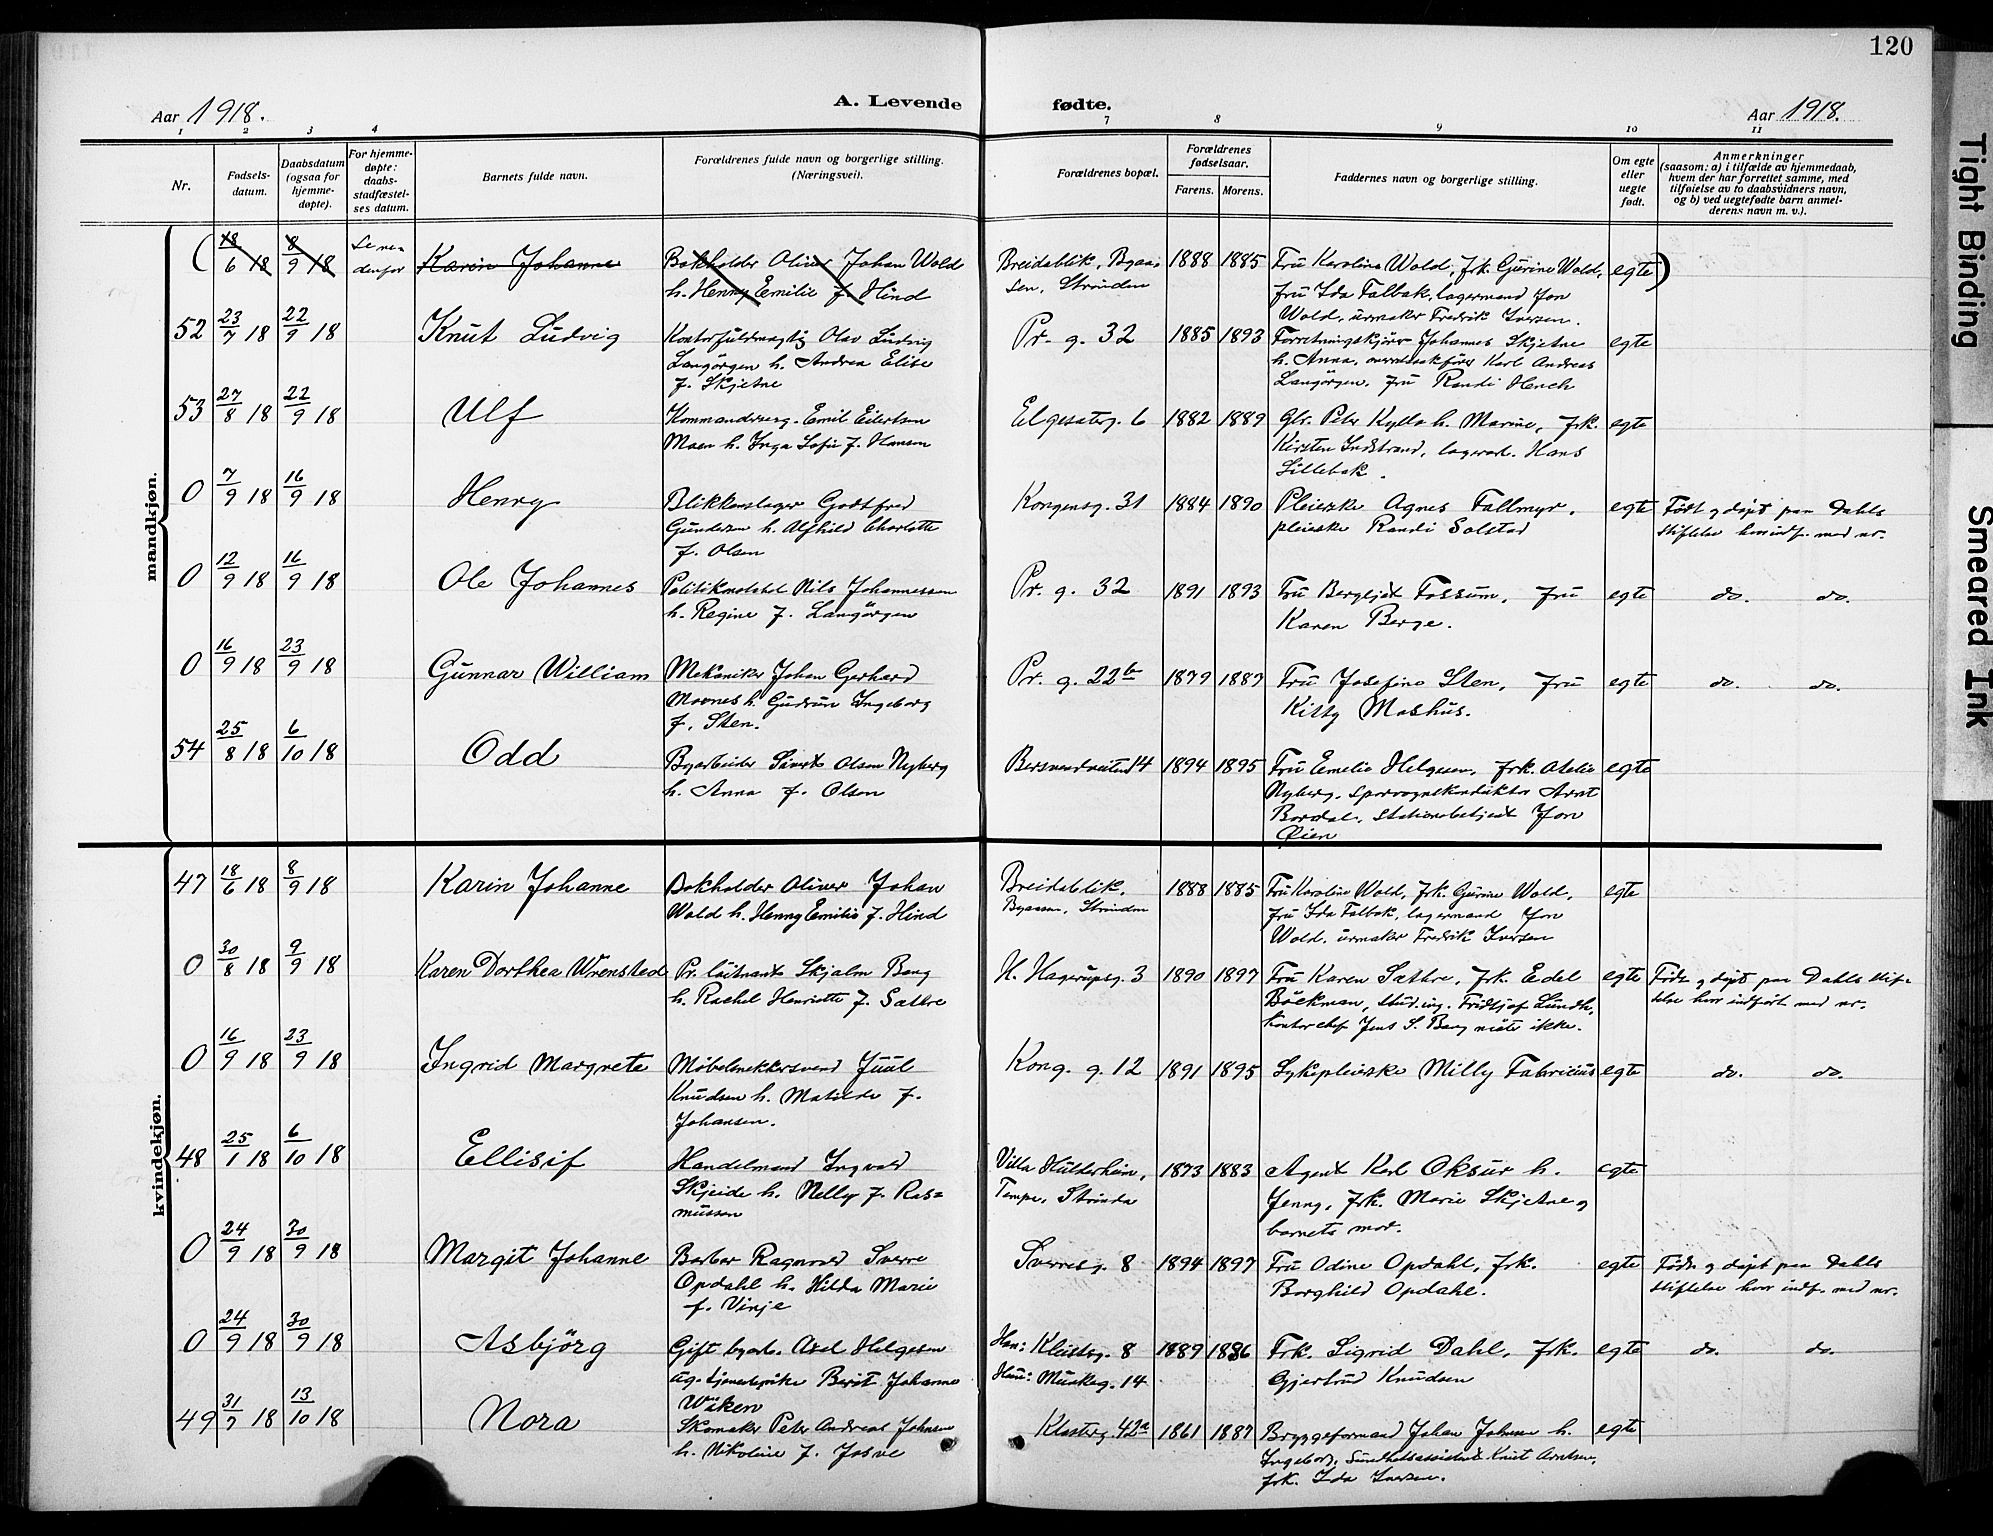 120
Aar 1918.
A. Levende fødte.
Aar 1918.
1 2 3 4 7 8 9 10 11
Nr.
Fødsels-
datum.
Daabsdatum
(ogsaa for
hjemme-
døpte).
For hjemme-
døpte:
daabs-
stadfæstel-
ses datum.
Barnets fulde navn.
Forældrenes fulde navn og borgerlige stilling.
(Næringsvei).
Forældrenes bopæl.
Forældrenes
fødselsaar.
Farens. Morens.
Faddernes navn og borgerlige stilling.
Om egte
eller
uegte
født.
Anmerkninger
(saasom: a) i tilfælde av hjemmedaab,
hvem der har forrettet samme, med
tilføielse av to daabsvidners navn,
og b) ved uegtefødte barn anmel-
derens navn m. v.).
mandkjøn.
( 18/6 18 8/9 18 Se ne-
denfor
Karin Johanne
Bokholder Oliver Johan Wold
h. Henny Emilie f. Hind
Breidablik, Byaa-
sen, Strinden
1888 1885
Fru Karoline Wold, frk. Gurine Wold,
fru Ida Falbak, lagermand Jon
Wold, urmaker Fredrik Iversen.
egte )
52 23/7 18 22/9 18
Knut Ludvig
Kontorfuldmægtig Olav Ludvig
Langörgen h. Andrea Elise
f. Skjetne
Pr. g. 32
1885 1893
Johannes Skjetne
h. Anna, Karl Andreas
Langörgen, fru Randi Hench
egte
53 27/8 18 22/9 18
Ulf
Emil Eilertsen
Moen h. Inga Sofie f. Hansen
Elgesaterg. 6
1882 1889
Peter Kylla h. Marine, frk.
Kirsten Indstrand, lagerarb. Hans
Lillebak.
egte
0 7/9 18 16/9 18
Henry
Blikkenslager Godtfred
Gundersen h. Alfhild Charlotte
f. Olsen
Kongensg. 31
1884 1890
Pleierske Agnes Fallmyr,
pleierske Randi Solstad
egte
Født og døpt paa Dahls
stiftelse hvor indf. med nr.
0 12/9 18 16/9 18
Ole Johannes
Politikonstabel Nils Johannessen
h. Regine f. Langörgen
Pr. g. 32
1891 1893
Fru Bergljot Fossum, fru
Karen Berge.
egte
do. do.
0 16/9 18 23/9 18
Gunnar William
Mekaniker Johan Gerhard
Moones h. Gudrun Ingeborg
f. Sten.
Pr. g. 22b
1879 1887
Fru Josefine Sten, fru
Kitty Moshus.
egte
do. do.
54 25/8 18 6/10 18
Odd
Byarbeider Sivert Olsen Nyberg
h. Anna f. Olsen
Bersvendveiten 14
1894 1895
Fru Emelie Helgesen, frk. Atelie
Nyberg, sporvognskonduktør Arnt
Bordal, stationsbetjent Jon
Øien
egte
kvindekjøn.
47 18/6 18 8/9 18
Karin Johanne
Bokholder Oliver Johan
Wold h. Henny Emilie f. Hind
Breidablik,
Byaasen, Strinden
1888 1885
Fru Karoline Wold, frk. Gurine Wold,
fru Ida Falbak, lagermand Jon
Wold, urmaker Fredrik Iversen
egte
0 30/8 18 9/9 18
Karen Dorthea Wrensted
Pr. löitnant Skjalm Bang
h. Rachel Henriette f. Sæthre
H. Hagerupsg. 3
1890 1897
Fru Karen Sæthre, frk. Edel
Böckman, stud. ing. Fridtjof Lundh,
kontorchef Jens S. Bang møtte ikke.
egte
Født og døpt paa Dahls stif-
telse hvor indført med nr.
0 16/9 18 23/9 18
Ingrid Margrete
Möbelsnekkersvend Juul
Knudsen h. Matilde f.
Johansen.
Kong. g. 12
1891 1895
Sykepleierske Milly Fabricius
egte
do. do.
48 25/1 18 6/10 18
Ellisif
Handelsmand Ingvald
Skjeide h. Nelly f. Ras-
mussen
Villa Hulderheim,
Tempe, Strinda
1873 1883
Agent Karl Oksur h.
Jenny, frk. Marie Skjetne og
barnets mor.
egte
0 24/9 18 30/9 18
Margit Johanne
Barber Ragnvald Sverre
Opdahl h. Hilda Marie
f. Vinje
Sverresg. 8
1894 1897
Fru Odine Opdahl, frk.
Borghild Opdahl.
egte
Født og døpt paa Dahls
stiftelse hvor indf. med nr.
0 24/9 18 30/9 18
Asbjörg
Gift byarb. Axel Helgesen
og tjenestepike Berit Johanne
Wiken
Han: Kleistsg. 8
Hun: Munkeg. 14
1889 1886
Frk. Sigrid Dahl, frk.
Gjertrud Knudsen
egte
do. do.
49 31/7 18 13/10 18
Nora
Skomaker Peter Andreas Johnsen
h. Nikoline f. Josve
Klosterg. 42a
1861 1887
Bryggeformand Johan Johnsen h.
Ingeborg, Sundhetsassistent Knut Arntsen,
frk. Ida Iversen.
egte
Tight Binding
Smeared Ink